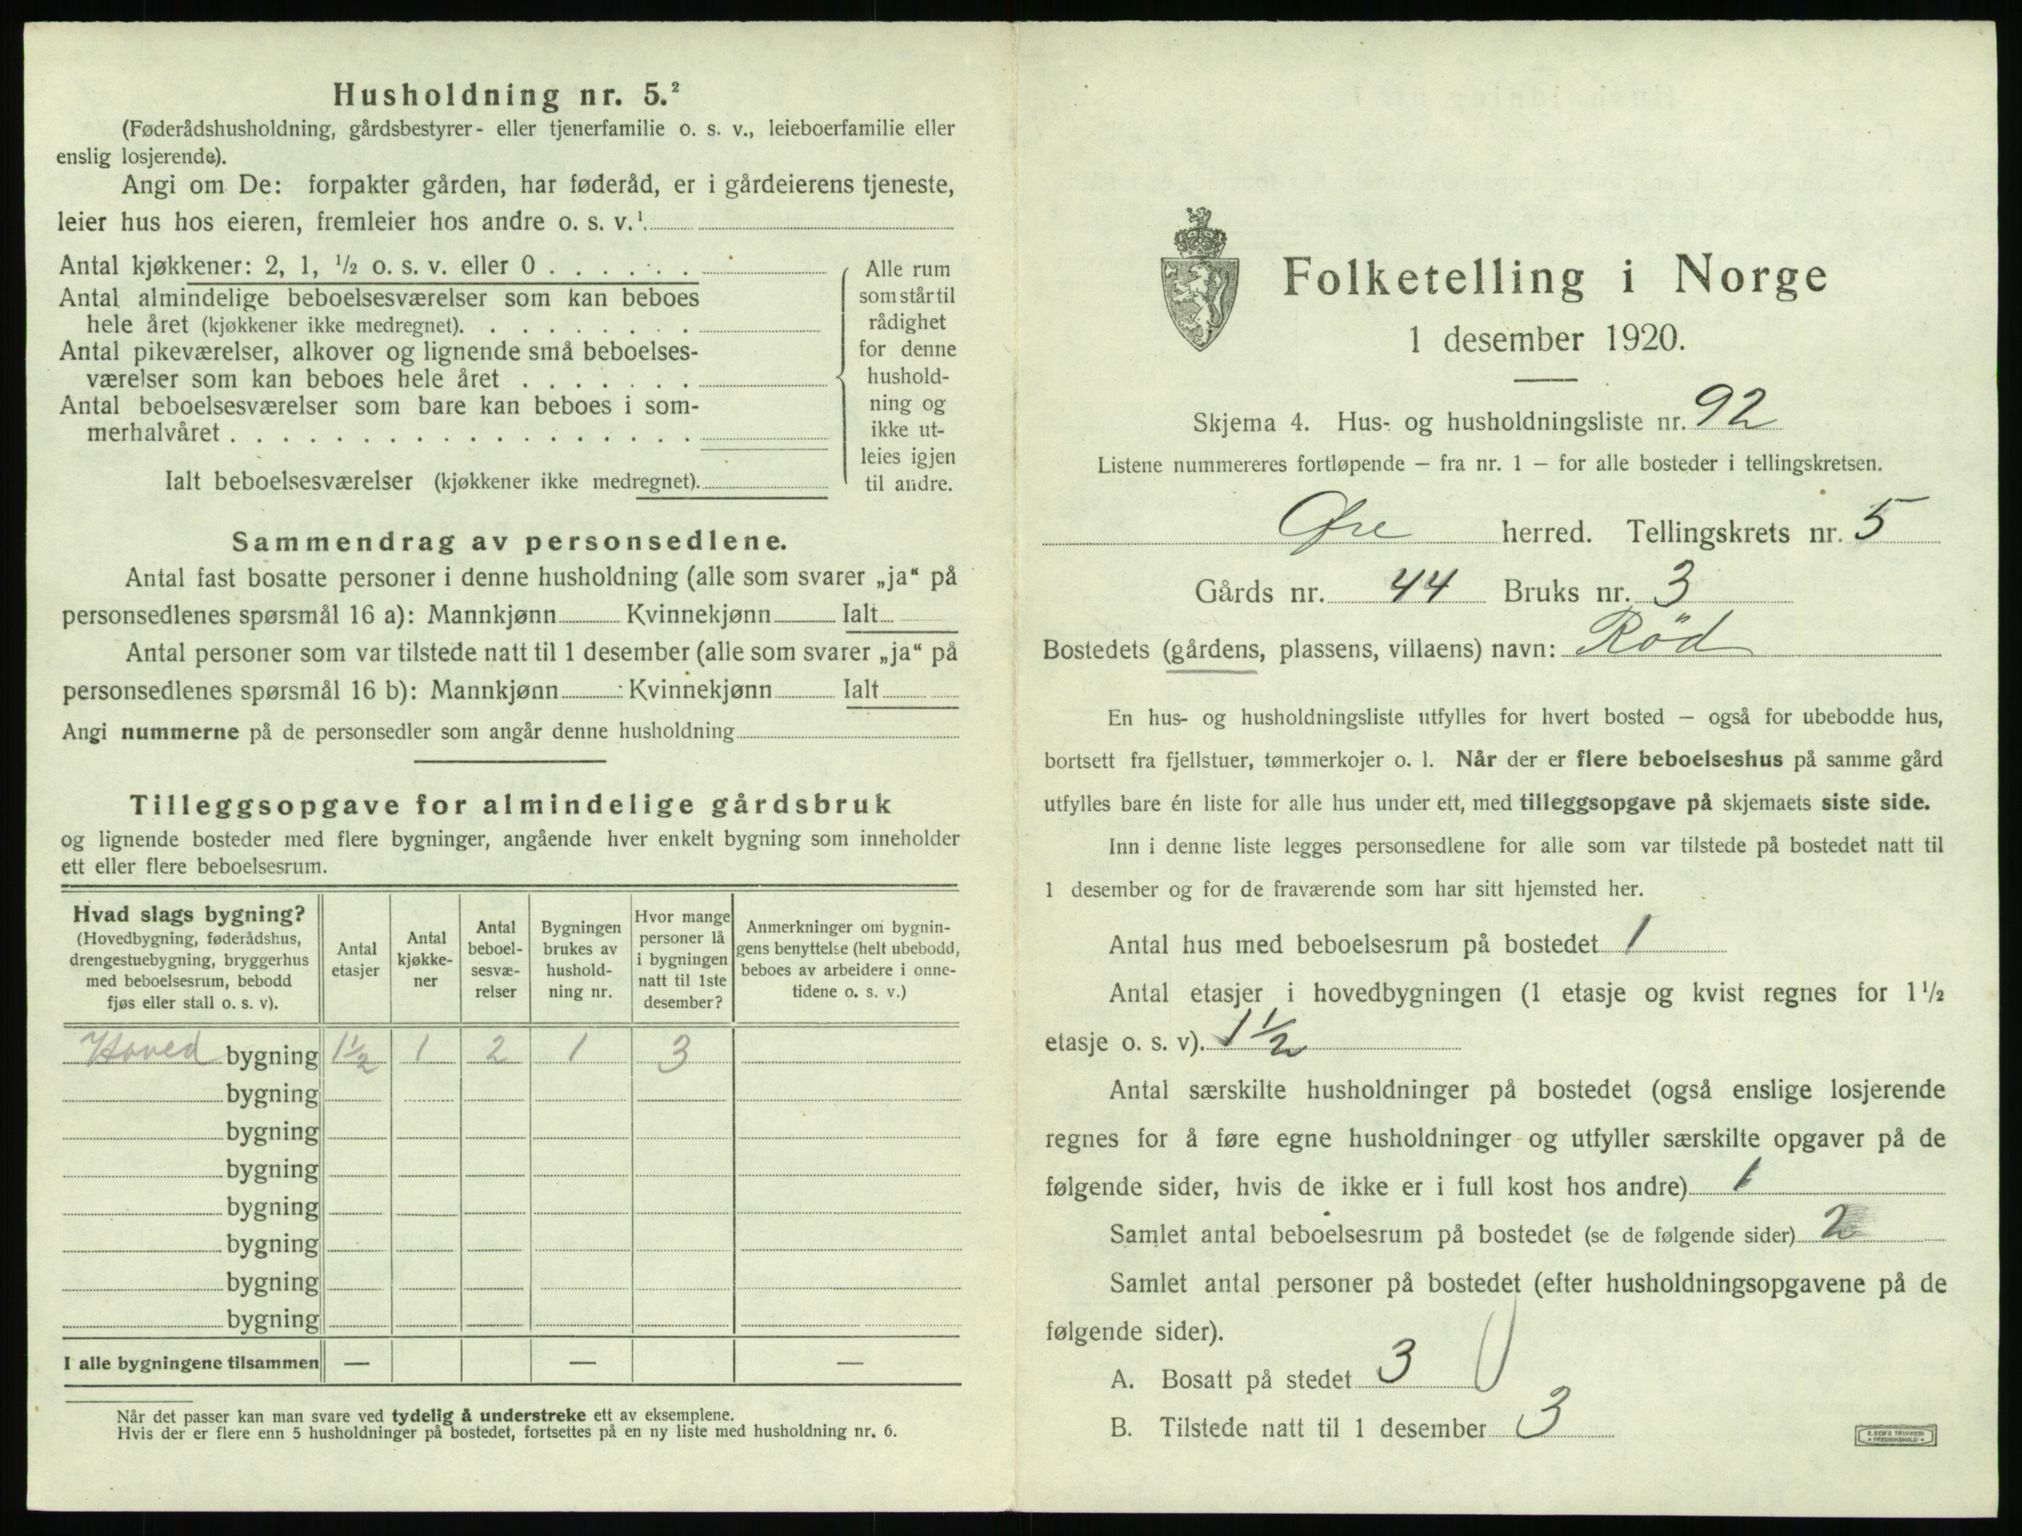 Husholdning nr. 5.²
(Føderådshusholdning, gårdsbestyrer- eller tjenerfamilie o. s. v., leieboerfamilie eller
enslig losjerende).
Angi om De: forpakter gården, har føderåd, er i gårdeierens tjeneste,
leier hus hos eieren, fremleier hos andre o. s. v.¹
Antal kjøkkener: 2, 1, ½ o. s. v. eller 0 . . . . . .
Antal almindelige beboelsesværelser som kan beboes
hele året (kjøkkener ikke medregnet). . . . . . . . .
Antal pikeværelser, alkover og lignende små beboelses-
værelser som kan beboes hele året . . . . . . .
Antal beboelsesværelser som bare kan beboes i som-
merhalvåret . . . . . . . . . . . . . . . . . .
Ialt beboelsesværelser (kjøkkener ikke medregnet).
Alle rum
som står til
rådighet
for denne
hushold-
ning og
ikke ut-
leies igjen
til andre.
Sammendrag av personsedlene.
Antal fast bosatte personer i denne husholdning (alle som svarer „ja“ på
personsedlenes spørsmål 16 a): Mannkjønn Kvinnekjønn Ialt
Antal personer som var tilstede natt til 1 desember (alle som svarer „ja“ på
personsedlenes spørsmål 16 b): Mannkjønn Kvinnekjønn Ialt
Angi nummerne på de personsedler som angår denne husholdning
Tilleggsopgave for almindelige gårdsbruk
og lignende bosteder med flere bygninger, angående hver enkelt bygning som inneholder
ett eller flere beboelsesrum.
Hvad slags bygning?
(Hovedbygning, føderådshus,
drengestuebygning, bryggerhus
med beboelsesrum, bebodd
fjøs eller stall o. s. v).
Antal
etasjer
Antal
kjøkke-
ner
Antal
beboel-
sesvæ-
relser
Bygningen
brukes av
hushold-
ning nr.
Hvor mange
personer lå
i bygningen
natt til 1ste
desember?
Anmerkninger om bygnin-
gens benyttelse (helt ubebodd,
beboes av arbeidere i onne-
tidene o. s. v.)
Hoved bygning 1½ 1 2 1 3
bygning
bygning
bygning
bygning
bygning
bygning
bygning
I alle bygningene tilsammen — — —
Når det passer kan man svare ved tydelig å understreke ett av eksemplene.
Hvis der er flere enn 5 husholdninger på bostedet, fortsettes på en ny liste med husholdning nr. 6.
Folketelling i Norge
1 desember 1920.
Skjema 4. Hus- og husholdningsliste nr. 92
Listene nummereres fortløpende — fra nr. 1 — for alle bosteder i tellingskretsen.
Øre herred. Tellingskrets nr. 5
Gårds nr. 44 Bruks nr. 3
Bostedets (gårdens, plassens, villaens) navn: Röd
En hus- og husholdningsliste utfylles for hvert bosted — også for ubebodde hus,
bortsett fra fjellstuer, tømmerkojer o. l. Når der er flere beboelseshus på samme gård
utfylles bare én liste for alle hus under ett, med tilleggsopgave på skjemaets siste side.
Inn i denne liste legges personsedlene for alle som var tilstede på bostedet natt til
1 desember og for de fraværende som har sitt hjemsted her.
Antal hus med beboelsesrum på bostedet 1
Antal etasjer i hovedbygningen (1 etasje og kvist regnes for 1½
etasje o. s. v). 1½
Antal særskilte husholdninger på bostedet (også enslige losjerende
regnes for å føre egne husholdninger og utfyller særskilte opgaver på de
følgende sider, hvis de ikke er i full kost hos andre) 1
Samlet antal beboelsesrum på bostedet (se de følgende sider) 2
Samlet antal personer på bostedet (efter husholdningsopgavene på de
følgende sider).
A. Bosatt på stedet 3
B. Tilstede natt til 1 desember 3
E. SEM'S TRYKKERI
FREDRIKSHALD